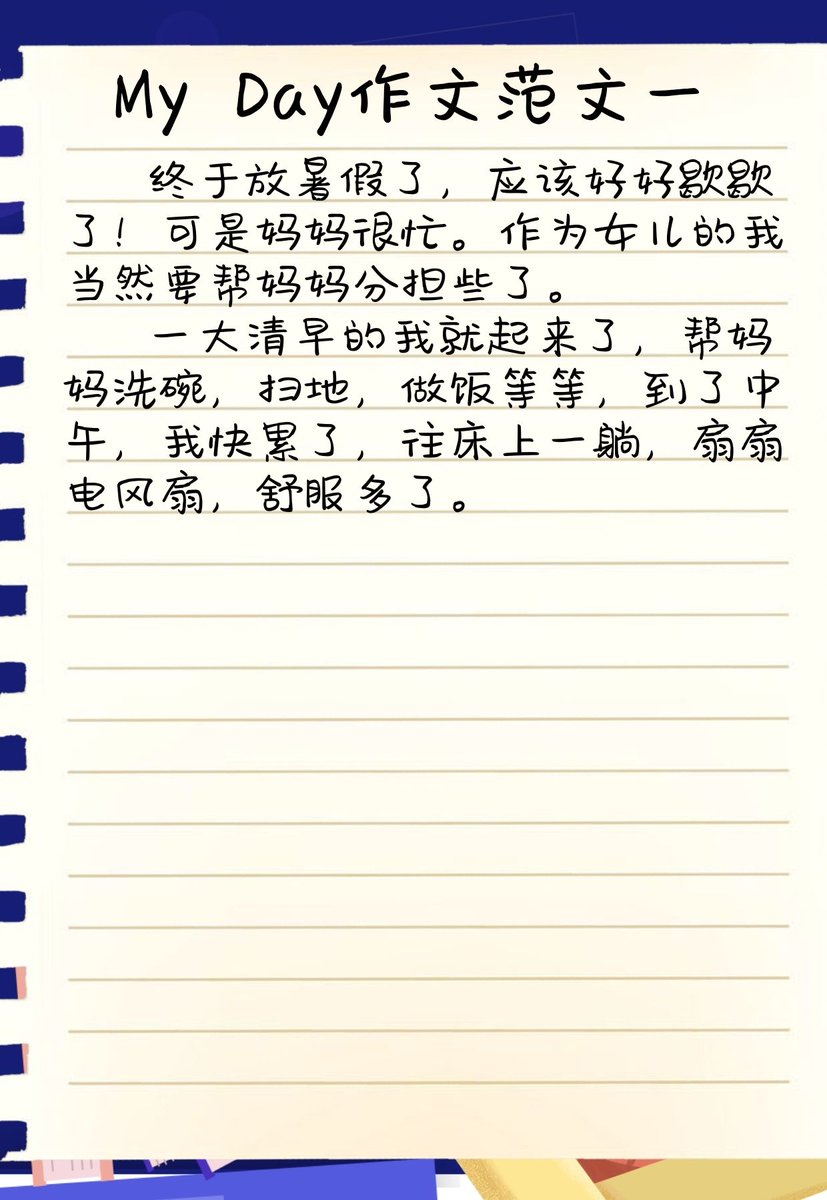 My Day作文范文一
终于放暑假了，应该好好歇歇
了！可是妈妈很忙。作为女儿的我
当然要帮妈妈分担些了。
一大清早的我就起来了，帮妈
妈洗碗，扫地，做饭等等，到了中
午，我快累了，往床上一躺，扇扇
电风扇，舒服多了。